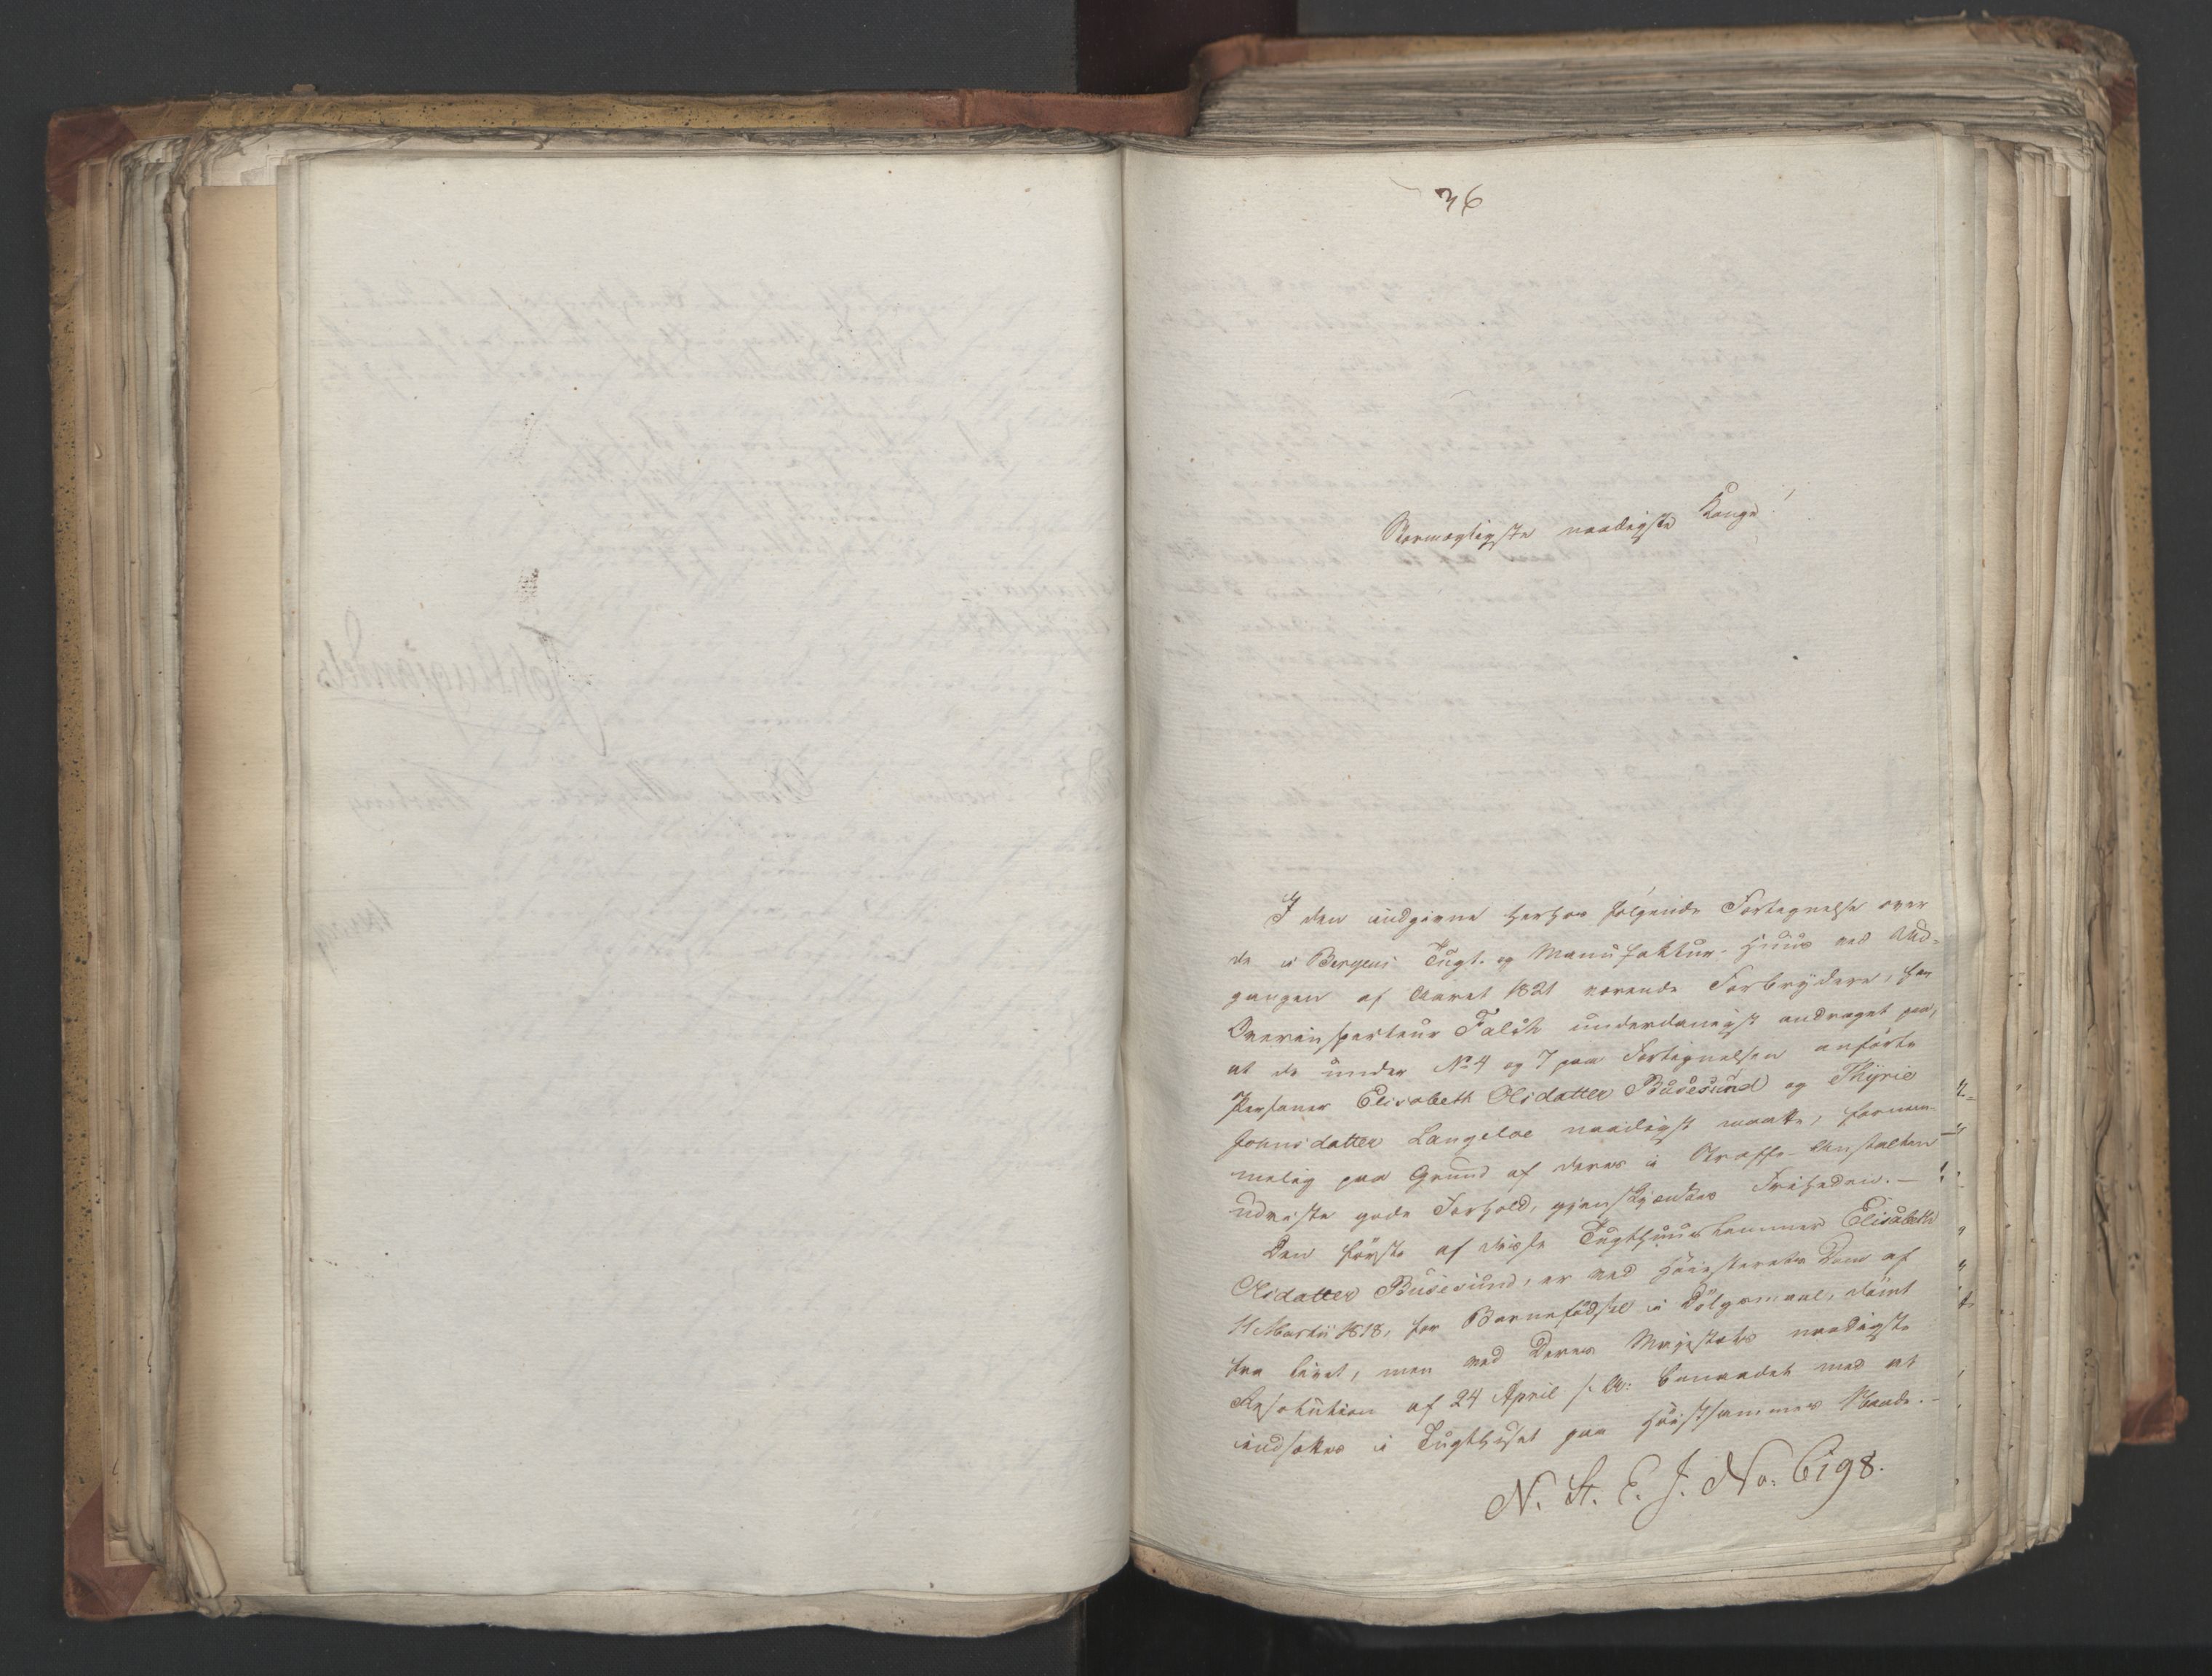 36
Stormægtigste naadigste Konge!
I den indgivne herhos følgende Fortegnelse over
de i Bergens Tugt- og Manufaktur-Huus ved Ud-
gangen af Aaret 1821 værende Forbrydere, har
Overinspecteur Falch underdanigst andraget paa,
at de under No 4 og 7 paa Fortegnelsen anførte
Personer Elisabeth Olsdatter Buøesund og Thyrie
Johnsdatter Langeloe naadigst maatte, fornem-
melig paa Grund af deres i Straffe-Anstalten
udviste gode Forhold, gjenskjænkes Friheden. —
Den første af disse Tugthuuslemmer Elisabeth
Olsdatter Buøesund, er ved Høiesterets Dom af
11 Martii 1818, for Barnefødsel i Dølgsmaal, dømt
fra Livet, men ved Deres Majestæts naadigste
Resolution af 24 April s. A: benaadet med at
indsættes i Tugthuset paa Høistsammes Naade. -
N. St. E. J. No: 6198.